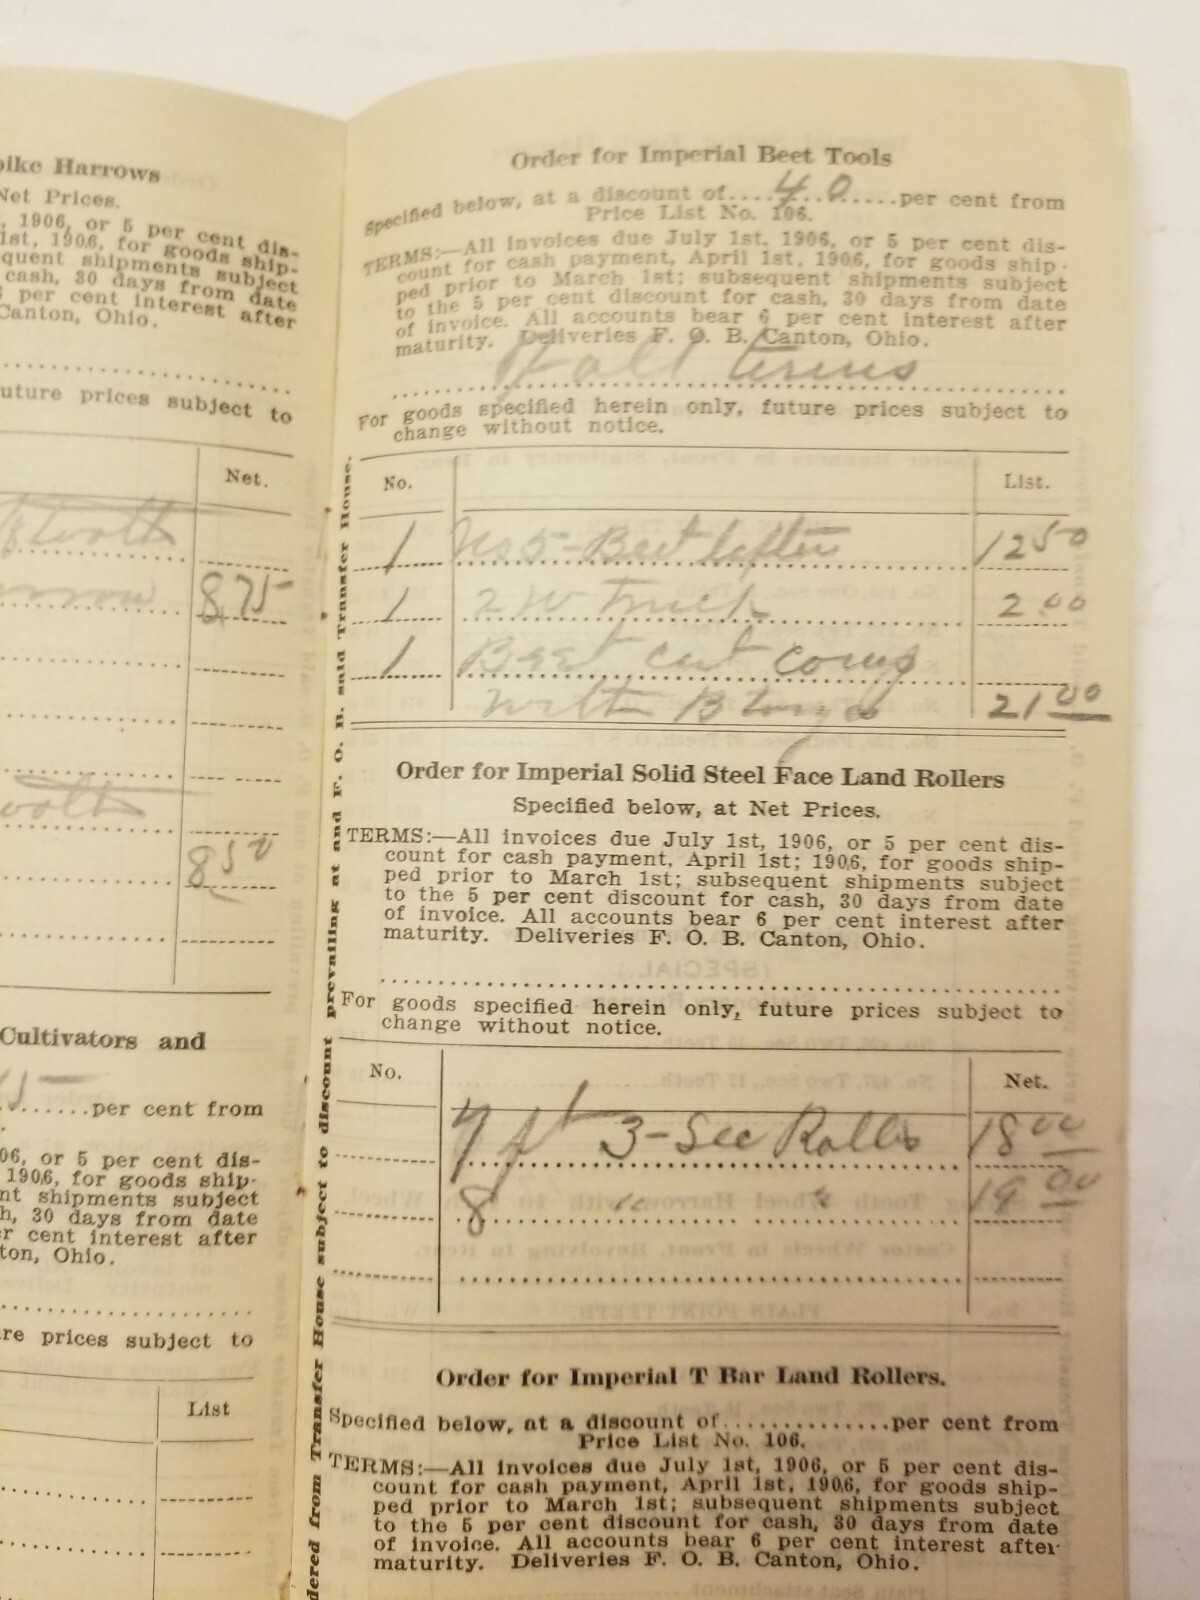 pike Harrows
Net Prices.
, 1906, or 5 per cent dis-
1st, 1906, for goods ship-
quent shipments subject
cash, 30 days from date
6 per cent interest after
Canton, Ohio.
uture prices subject to
Net.
8 75
8 50
Cultivators and
15 per cent from
06, or 5 per cent dis-
1906, for goods ship-
nt shipments subject
h, 30 days from date
r cent interest after
ton, Ohio.
re prices subject to
List
dered from Transfer House subject to discount prevailing at and F. O. B. said Transfer House.
Order for Imperial Beet Tools
Specified below, at a discount of....40......per cent from
Price List No. 106.
TERMS:—All invoices due July 1st, 1906, or 5 per cent dis-
count for cash payment, April 1st, 1906, for goods ship-
ped prior to March 1st; subsequent shipments subject
to the 5 per cent discount for cash, 30 days from date
of invoice. All accounts bear 6 per cent interest after
maturity. Deliveries F. O. B. Canton, Ohio.
Fall terms
For goods specified herein only, future prices subject to
change without notice.
No. List.
1 No 5 - Beet lifter 12 50
1 2 W Truck 2 00
1 Beet cut comp
with B 21 00
Order for Imperial Solid Steel Face Land Rollers
Specified below, at Net Prices.
TERMS:—All invoices due July 1st, 1906, or 5 per cent dis-
count for cash payment, April 1st; 1906, for goods ship-
ped prior to March 1st; subsequent shipments subject
to the 5 per cent discount for cash, 30 days from date
of invoice. All accounts bear 6 per cent interest after
maturity. Deliveries F. O. B. Canton, Ohio.
For goods specified herein only, future prices subject to
change without notice.
No. Net.
7 ft 3-Sec Rolls 18 00
8 " " 19 00
Order for Imperial T Bar Land Rollers.
Specified below, at a discount of..............per cent from
Price List No. 106.
TERMS:—All invoices due July 1st, 1906, or 5 per cent dis-
count for cash payment, April 1st, 1906, for goods ship-
ped prior to March 1st; subsequent shipments subject
to the 5 per cent discount for cash, 30 days from date
of invoice. All accounts bear 6 per cent interest after
maturity. Deliveries F. O. B. Canton, Ohio.